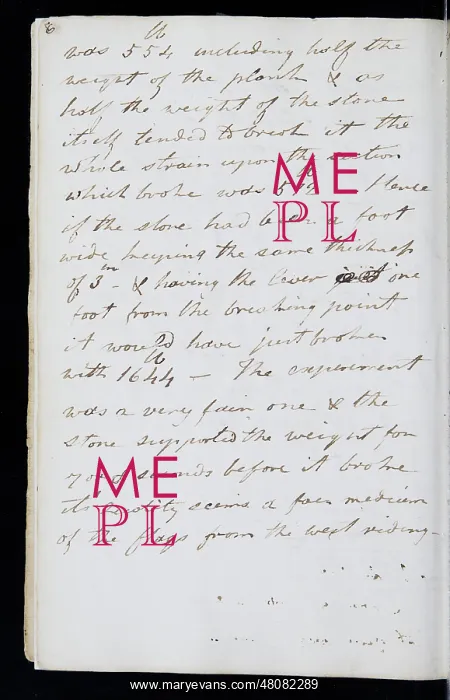 8
lb
was 554 including half the
weight of the plank & as
half the weight of the stone
itself tended to break it the
whole strain upon the section
which broke was Hence
if the stone had been a foot
wide keeping the same thickness
of 3 in - & having the lever one
foot from the breaking point
it would have just broken
lb
with 1644 — The experiment
was a very fair one & the
stone supported the weight for
seconds before it broke
its seems a fair medium
of the flags from the west riding -
ME
PL
ME
PL
www.maryevans.com/48082289